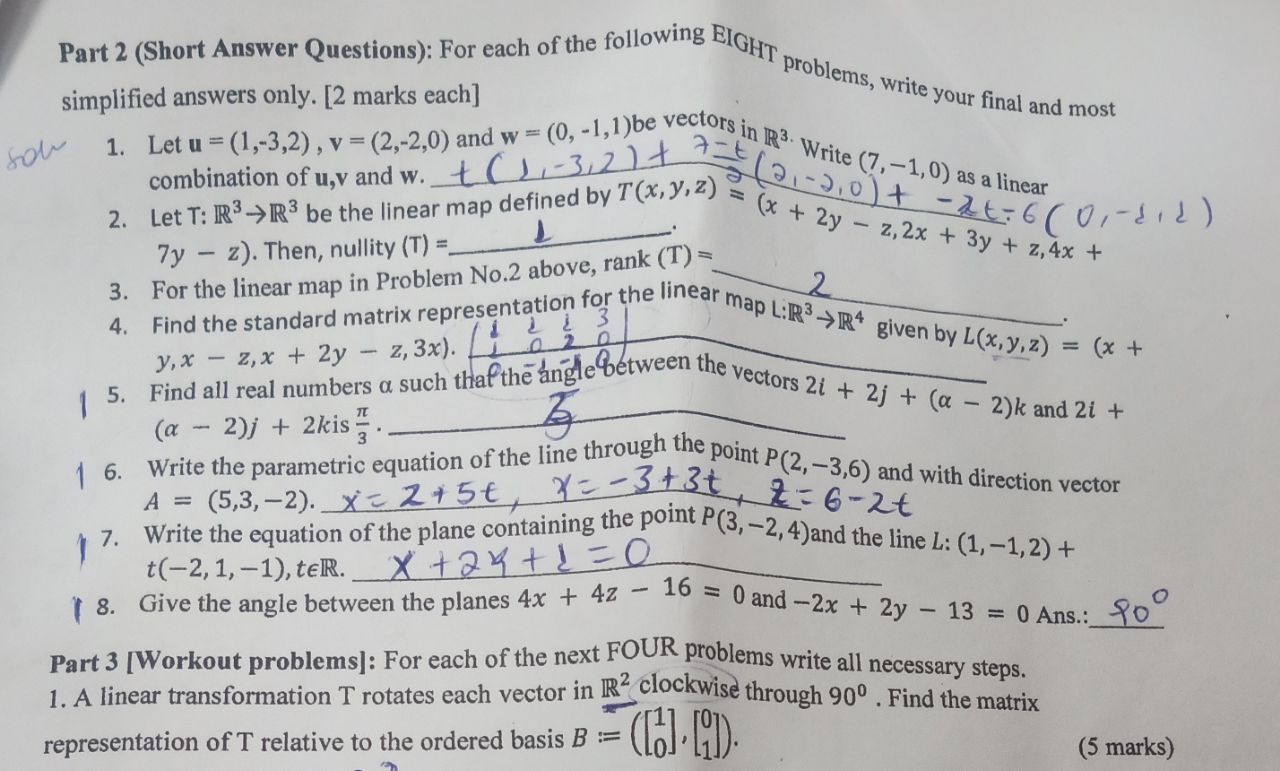 Part 2 (Short Answer Questions): For each of the following EIGHT problems, write your final and most
simplified answers only. [2 marks each]
1. Let u = (1,-3,2) , v = (2,-2,0) and w = (0, -1,1)be vectors in ℝ³. Write (7, −1, 0) as a linear
combination of u,v and w. t(1,-3,2) + 7-t/2 (2,-2,0) + -2t-6(0,-1,1)
2. Let T: ℝ³→ℝ³ be the linear map defined by T(x, y, z) = (x + 2y − z, 2x + 3y + z, 4x +
7y − z). Then, nullity (T) = 1.
3. For the linear map in Problem No.2 above, rank (T) = 2.
4. Find the standard matrix representation for the linear map L:ℝ³→ℝ⁴ given by L(x, y, z) = (x +
y, x − z, x + 2y − z, 3x).
1 1 1 3
1 0 2 0
0 -1 -1 0
1 5. Find all real numbers α such that the angle between the vectors 2i + 2j + (α − 2)k and 2i +
(α − 2)j + 2kis π/3.
1 6. Write the parametric equation of the line through the point P(2, −3,6) and with direction vector
A = (5,3, −2). x = 2+5t, y = -3+3t, z = 6-2t
1 7. Write the equation of the plane containing the point P(3, −2, 4)and the line L: (1, −1, 2) +
t(−2, 1, −1), tϵℝ. x + 2y + 1 = 0
1 8. Give the angle between the planes 4x + 4z − 16 = 0 and −2x + 2y − 13 = 0 Ans.: 90⁰
Part 3 [Workout problems]: For each of the next FOUR problems write all necessary steps.
1. A linear transformation T rotates each vector in ℝ² clockwise through 90⁰ . Find the matrix
representation of T relative to the ordered basis B := ([1 0], [0 1]).
(5 marks)